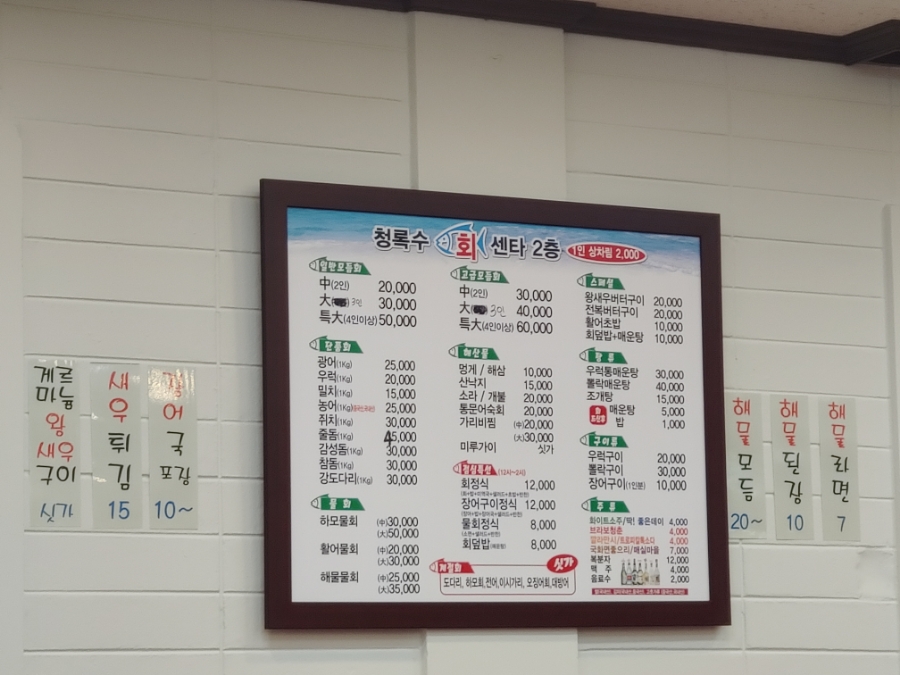 청록수 회 센타 2층 1인 상차림 2,000
일반모듬회
中(2인) 20,000
大 3인 30,000
特大(4인이상) 50,000
단품회
광어(1Kg) 25,000
우럭(1Kg) 20,000
밀치(1Kg) 15,000
농어(1Kg) 25,000
쥐치(1Kg) 30,000
줄돔(1Kg) 45,000
감성돔(1Kg) 30,000
참돔(1Kg) 30,000
강도다리(1Kg) 30,000
물회
하모물회 (中)30,000
(大)50,000
활어물회 (中)20,000
(大)30,000
해물물회 (中)25,000
(大)35,000
고급모듬회
中(2인) 30,000
大 3인 40,000
特大(4인이상) 60,000
해산물
멍게 / 해삼 10,000
산낙지 15,000
소라 / 개불 20,000
통문어숙회 20,000
가리비찜 (中)20,000
(大)30,000
미루가이 싯가
점심특선
회정식 12,000
장어구이정식 12,000
물회정식 8,000
회덮밥 8,000
계절회 싯가
도다리, 하모회, 전어, 이시가리, 오징어회, 대방어
스페셜
왕새우버터구이 20,000
전복버터구이 20,000
활어초밥 10,000
회덮밥+매운탕 10,000
탕류
우럭통매운탕 30,000
뽈락매운탕 40,000
조개탕 15,000
매운탕 5,000
밥 1,000
구이류
우럭구이 20,000
뽈락구이 30,000
장어구이(1인분) 10,000
주류
화이트소주/딱! 좋은데이 4,000
브라보청춘 4,000
깔라만시/토로피칼톡소다 4,000
국화면좋으리/매실마을 7,000
복분자 12,000
맥주 4,000
음료수 2,000
게르
마늘
왕
새우
구이
싯가
새
우
튀
김
15
장
어
국
포장
10~
해
물
모
듬
20~
해
물
된
장
10
해
물
라
면
7